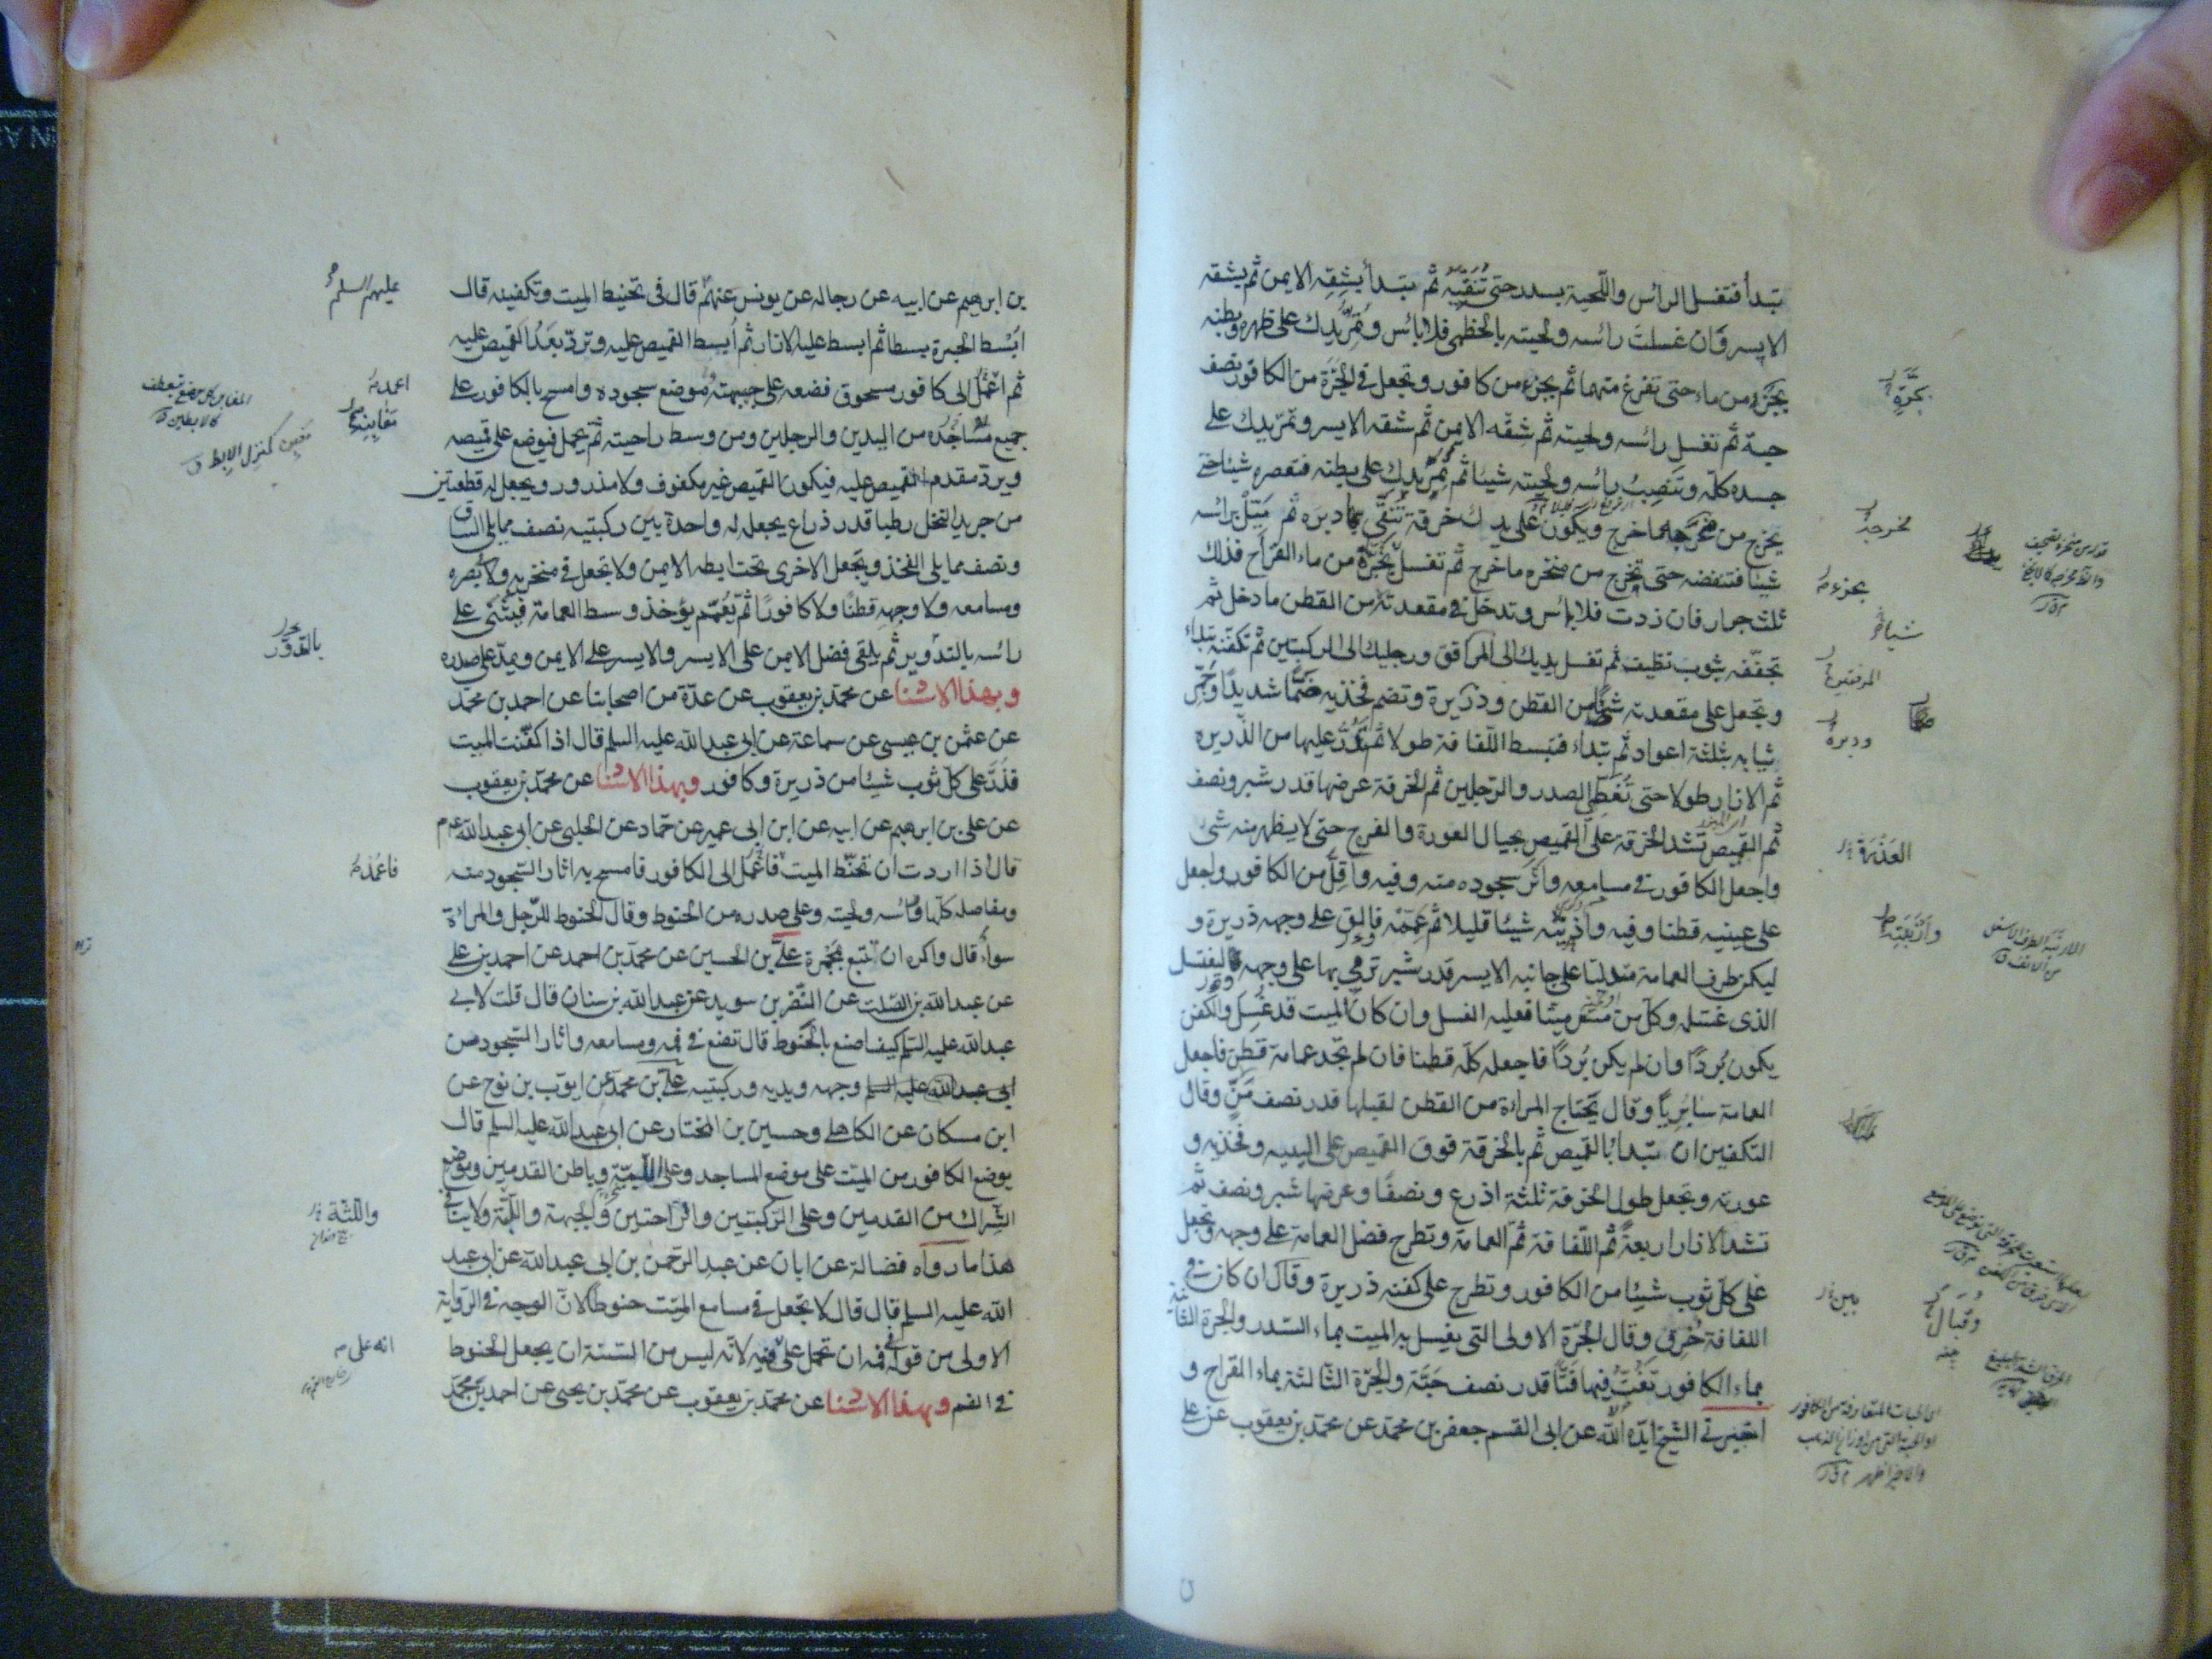 تبدأ فتغسل الرائس واللّحية بسدر حتى تُنقيّه ثم تبدأ بشقِه الايمن ثم بشقه
الايسر فان غسلتَ رائسه ولحيته بالخظمى فلابائس وتُمِرُّ يدك على ظهره وبطنه
بجَرّةٍ من ماء حتى تفرغ منهما ثم بجرّة من كافور وتجعل فى الجَرّة من الكافور نصف
حبة ثم تغسل رائسه ولحيته ثم شِقّه الايمن ثم شقه الايسر وتمرّ يدك على
جسده كلّه وتَنصِبُ رائسه ولحيته شيئا ثم تُمِرُّ يدك على بطنه فتعصره شيئا حتى
يخرج من مخرجه ما خرج ويكون على يدك خرقة تُنقّى بها دبره ثم مَيِّلْ برائسه
شيئا فتنفضه حتى يخرج من منخره ما خرج ثم تغسل بجَرّة من ماء القراح فذلك
ثلث جرار فان زدت فلابائس وتدخل فى مقعدته من القطن ما دخل ثم
تجفّفه بثوب نظيف ثم تغسل يديك الى المرافق ورجليك الى الركبتين ثم تكفّنه تبداء
وتجعل على مقعدته شيئا من القطن وذريرة وتضم فخذيه ضمًّا شديدًا وجَمِّر
ثيابه بثلثة اعواد ثم تبداء فتبسط اللّفافة طولا ثم تَذُرُّ عليها من الذّريره
ثم الازار طولا حتى تُغَطّى الصدر والرّجلين ثم الخرقة عرضها قدر شبر ونصف
ثم القميص تشد الخرقة على القميص بحيال العورة والفرج حتى لا يظهر منه شئ
واجعل الكافور فى مسامعه واثر سجوده منه وفيه واَقِلَّ من الكافور واجعل
على عينيه قطنا وفيه واذنيه شيئا قليلا ثم عَمِّمْه فالق على وجهه ذريرة و
ليكن طرف العمامة متدلّيا على جانبه الايسر قدر شبر ترمى بها على وجهه وليغتسل
الذى غسّله وكل من مسّ ميّتا فعليه الغسل وان كان الميت قد غُسِّلَ والكفن
يكون بُردًا وان لم يكن بُردًا فاجعله كلّه قطنا فان لم تجد عمامة قطن فاجعل
العمامة سابِرِياً وقال تحتاج المراءة من القطن لقبلها قدر نصف مَنٍّ وقال
التكفين ان تبدأ بالقميص ثم بالخرقة فوق القميص على الييه وفخذيه و
عورته وتجعل طول الخرقة ثلثة اذرع ونصفًا وعرضها شبر ونصف ثم
تشد الازار اربعةً ثم اللّفافة ثم العمامة وتطرح فضل العمامة على وجهه وتجعل
على كل ثوب شيئا من الكافور وتطرح على كفنه ذريرة وقال ان كان فى
اللفافة خرق وقال الجَرّة الاولى التى يغسل بها الميت بماء السّدر والجَرة الثانية
بماء الكافور تَفُتُّ فيها فَتًّا قدر نصف حَبّة والجرّة الثالثة بماء القراح و
اخبرنى الشيخ ايّده الله عن ابى القسم جعفر بن محمّد عن محمّد بن يعقوب عن على
بجَرّةٍ
مخرجه
بجزء
شيئا
المرفقين
العَذْرة
وارنبته
بن ابرهيم عن ابيه عن رجاله عن يونس عنهم قال فى تحنيط الميت وتكفينه قال
اَبْسط الحبرة بسطا ثم ابسط عليها الازار ثم اَبسط القميص عليه وتردّ بعَدُ القميص عليه
ثم اعمل الى كافور مسحوق فضعه على جبهته وموضع سجوده وامسح بالكافور على
جميع مساجده من اليدين والرجلين ومن وسط راحيته ثم يحمل فيوضع على قميصه
ويردّ مقدم القميص عليه فيكون القميص غير مكفوف ولا مذرور ويجعل له قطعتين
من جريد النخل رطبا قدر ذراع يجعل له واحدة بين ركبتيه نصف مما يلى الساق
ونصف مما يلى الفخذ ويجعل الاخرى تحت ابطه الايمن ولا تجعل فى منخريه ولا بصره
ومسامعه ولا وجهه قطنًا ولا كافورًا ثم يُعمّم يؤخذ وسط العمامة فيثنّى على
رائسه بالتدوير ثم يلقى فضل الايمن على الايسر والايسر على الايمن ويمدّ على صدره
وبهذا الاسنا عن محمد بن يعقوب عن عدّة من اصحابنا عن احمد بن محمّد
عن عثمن بن عيسى عن سماعة عن ابى عبد الله عليه السلم قال اذا كفّنت الميت
فذُرَّ على كل ثوب شيئا من ذريرة وكافور وبهذا الاسنا عن محمّد بن يعقوب
عن على بن ابرهيم عن ابيه عن ابن ابى عمير عن حمّاد عن الحلبى عن ابى عبد الله عم
قال اذا اردت ان تحنّط الميت فاعمل الى الكافور فامسح به اثار السّجود منه
ومفاصله كلّها ورائسه ولحيته وعلى صدره من الحنوط وقال الحنوط للرّجل والمراءة
سواء قال واكره ان تتبع بمَجْمرة علىّ بن الحسين عن محمّد بن احمد عن احمد بن على
عن عبد الله بن الصّلت عن النّضر بن سويد عن عبد الله بن سنان قال قلت لابى
عبد الله عليه السّلم كيف اصنع بالحَنوط قال تضع فى فمه ومسامعه واثار السّجود من
ابى عبد الله عليه السلم وجهه ويديه وركبتيه علىّ بن محمّد عن ايوّب بن نوح عن
ابن مسكان عن الكاهلى وحسين بن المختار عن ابى عبد الله عليه السلم قال
يوضع الكافور من الميّت على موضع المساجد وعلى اللّبة وباطن القدمين وموضع
الشّراك من القدمين وعلى الرّكبتين والرّاحتين والجبهة واللّبّة ولا ينافى
هذا ما رواه فضالة عن ابان عن عبد الرّحمن بن ابى عبد الله عن ابى عبد
الله عليه السلم قال قال لا تجعل فى مسامع الميّت حنوطًا لانّ الوجه فى الرّواية
الاولى من قوله فى فمه ان تحمل على فيه لانّه ليس من السّنة ان يجعل الحنوط
فى الفم وبهذا الاسنا عن محمّد بن يعقوب عن محمّد بن يحيى عن احمد بن محمّد
عليهم السلم
اعمد
مغابنه
فاعمد
واللّثة
انه على